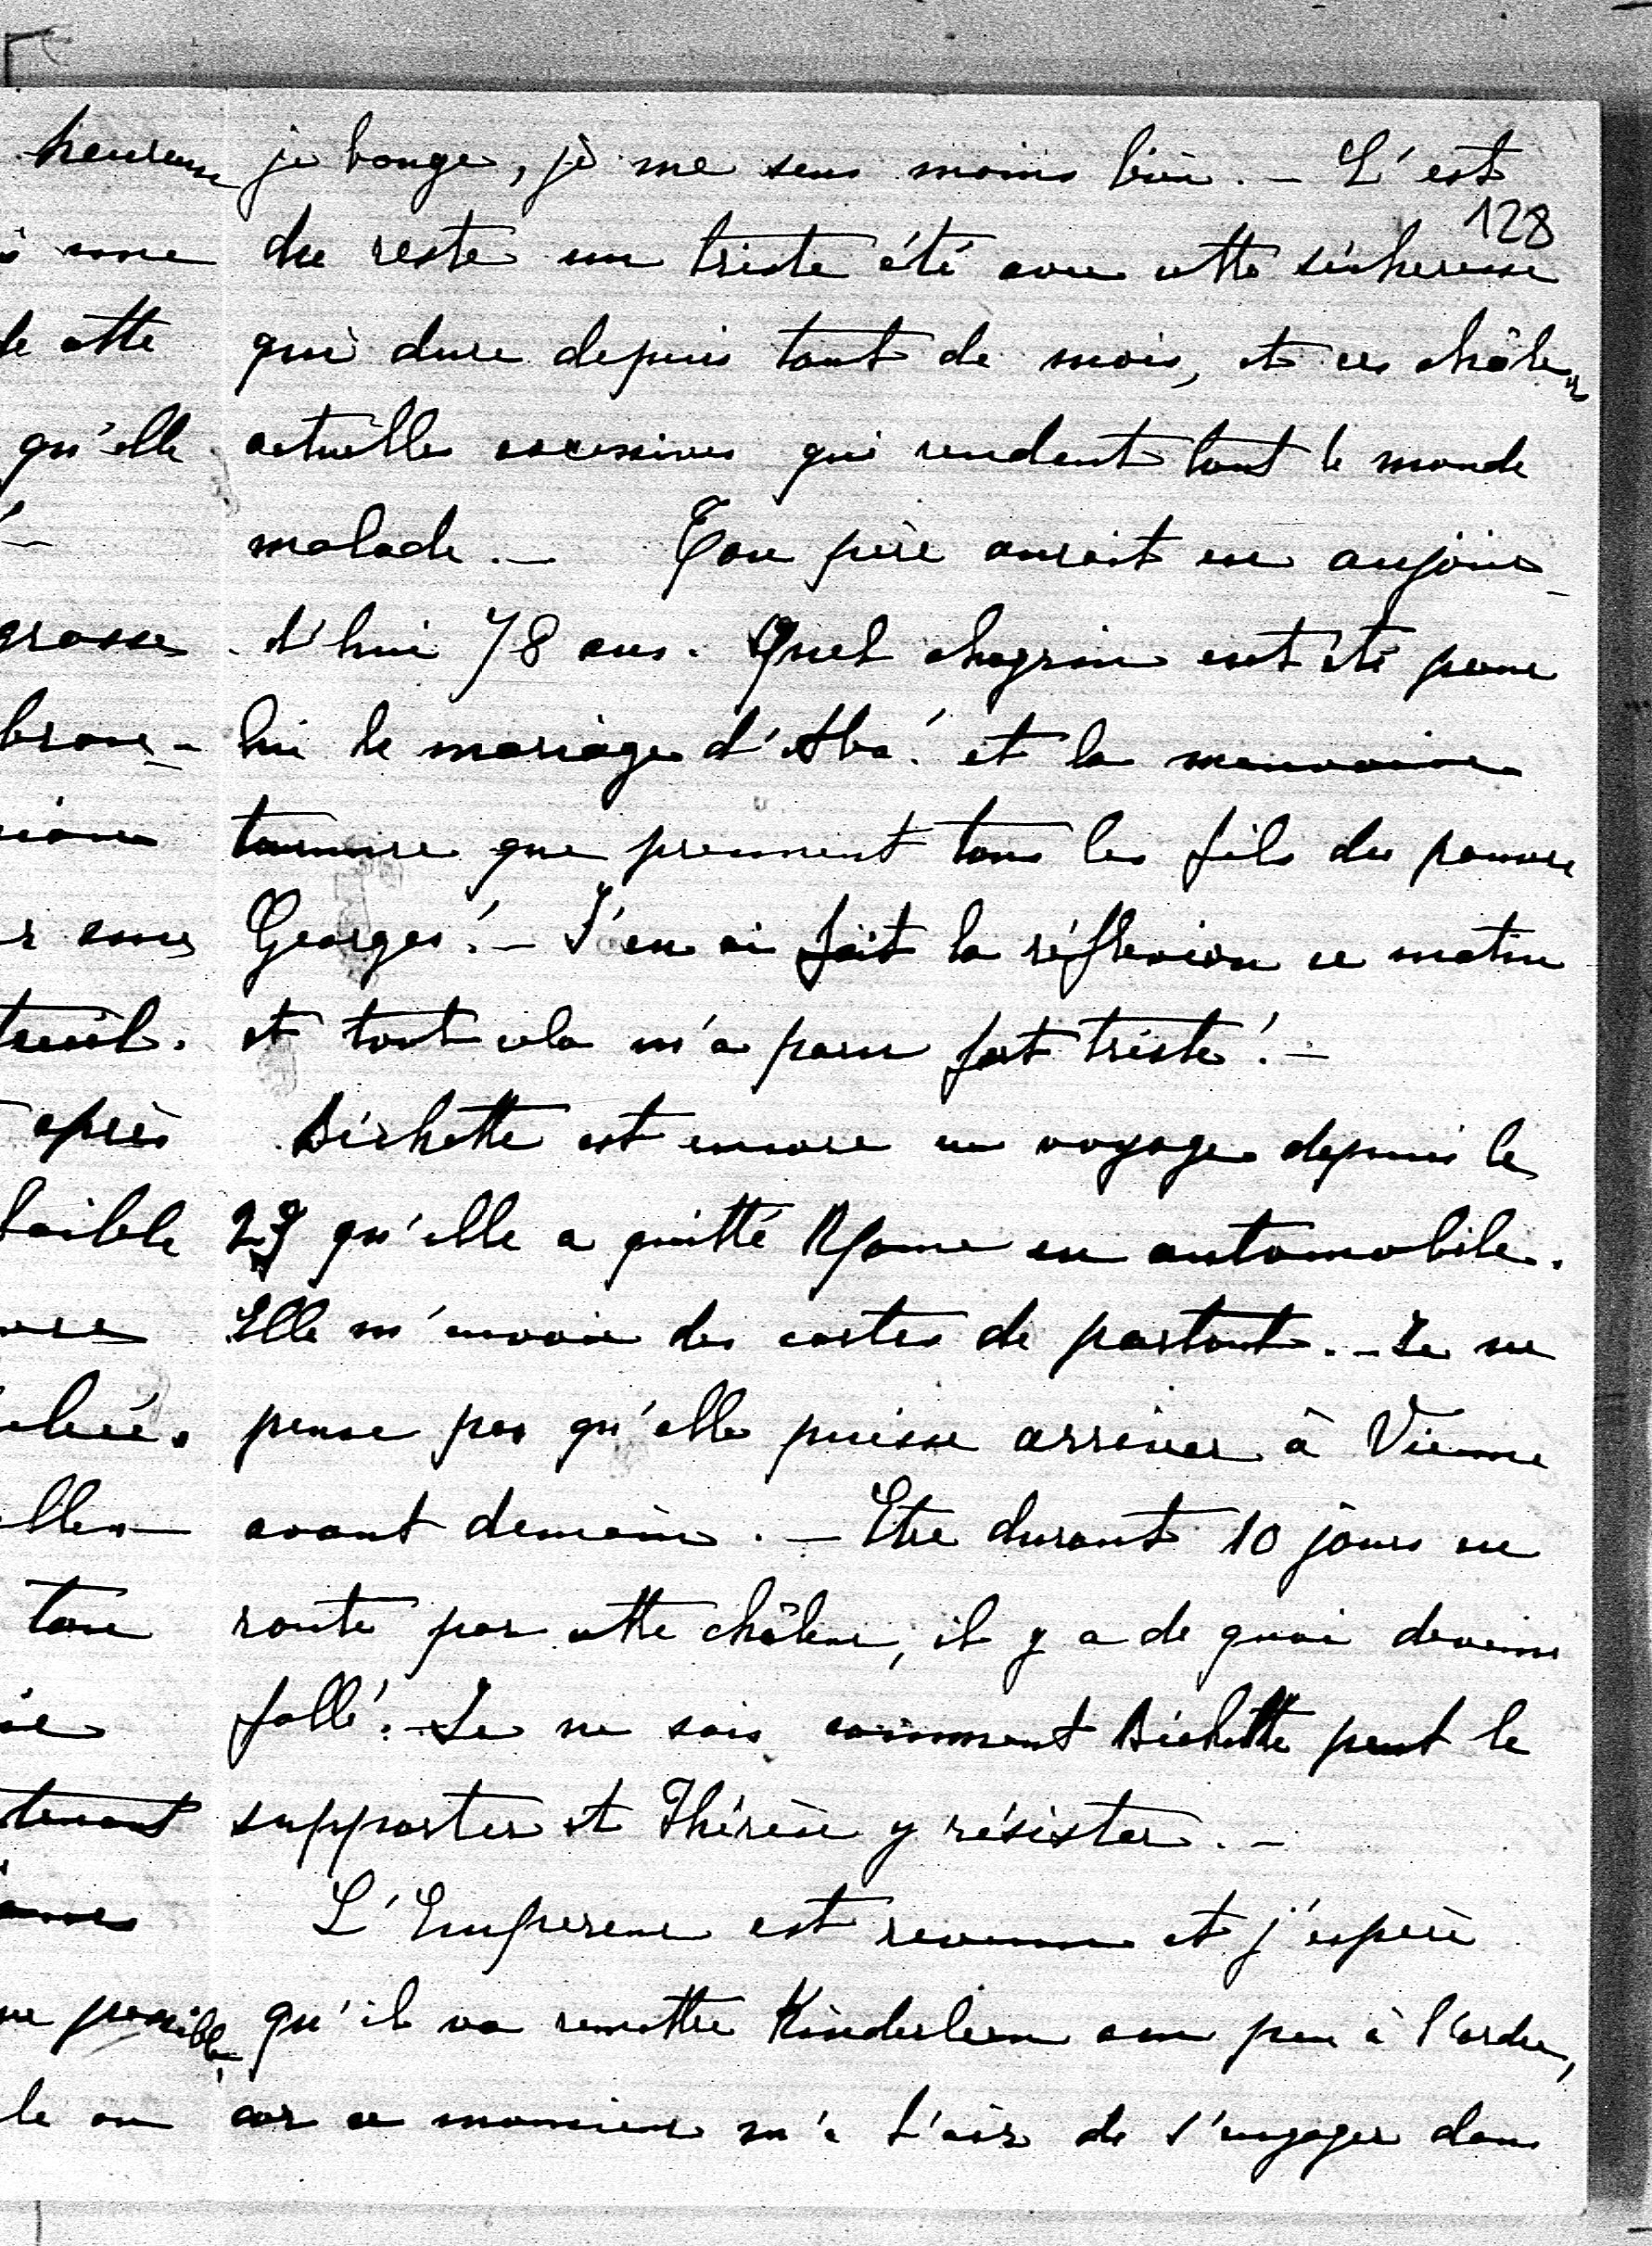 128
je bouge, je me sens moins bien. — C'est
du reste un triste été avec cette sécheresse
qui dure depuis tant de mois, et ces châleurs
actuelles excessives qui rendent tout le monde
malade. — Ton père aurait eu aujour-
d'hui 78 ans. Quel chagrin eut été pour
lui le mariage d'Aba! et la mauvaise
tournure que prennent tous les fils du pauvre
Georges! — J'en ai fait la réflexion ce matin
et tout cela m'a paru fort triste! —
Bichette est encore en voyage depuis le
27 qu'elle a quitté Rome en automobile.
Elle m'envoie des cartes de partout. — Je ne
pense pas qu'elle puisse arriver à Vienne
avant demain. — Etre durant 10 jours en
route par cette châleur, il y a de quoi devenir
folle! — Je ne sais comment Bichette peut le
supporter et Thérèse y résister. —
L'Empereur est revenu et j'espère
qu'il va remettre Kinderlen un peu à l'ordre,
car ce monsieur m'a l'air de s'engager dans
heureuse
une
de cette
qu'elle
grosse
après
faible
ton
tenant
possible,
le on